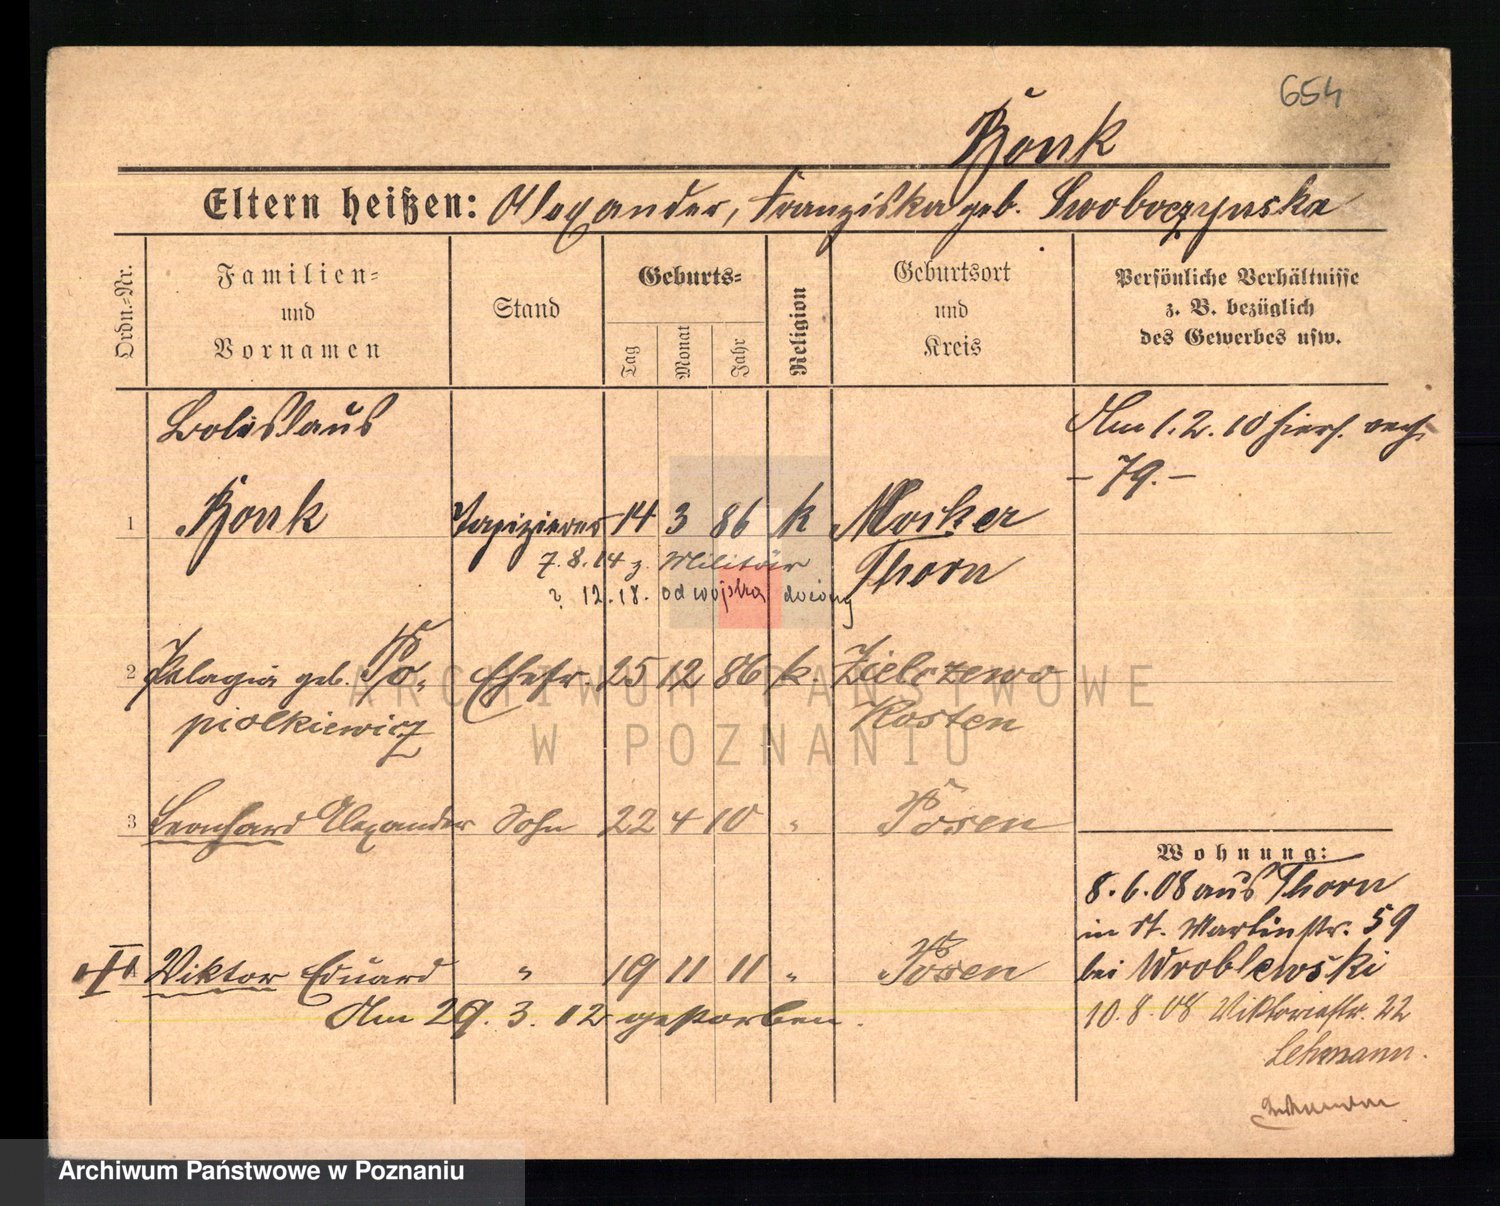 654
Bonk
Eltern heißen: Alexander, Franziska geb. Swoboczynska
Ordn.-Nr.
Familien- und Vornamen
Stand
Geburts-
Tag
Monat
Jahr
Religion
Geburtsort und Kreis
Persönliche Verhältnisse z. B. bezüglich des Gewerbes usw.
Boleslaus
Am 1. 2. 10 hiers.
- 79. -
1 Bonk Tapizierer 14 3 86 k Mocker
7. 8. 14 z. Militär
Thorn
12. 18. od wojska
2 Pelagia geb. Po- Ehefr. 25 12 86 k. Zielczewo
piolkiewicz Kosten
3 Leonhard Alexander Sohn 22 4 10 " Posen
Wohnung:
8. 6. 08 aus Thorn
in St. Martinstr. 59
bei Wroblewski
Viktor Eduard " 19 11 11 " Posen
Am 29. 3. 12 gestorben.
10. 8. 08 Viktoriastr. 22
Lehmann.
ARCHIWUM PAŃSTWOWE
W POZNANIU
Archiwum Państwowe w Poznaniu